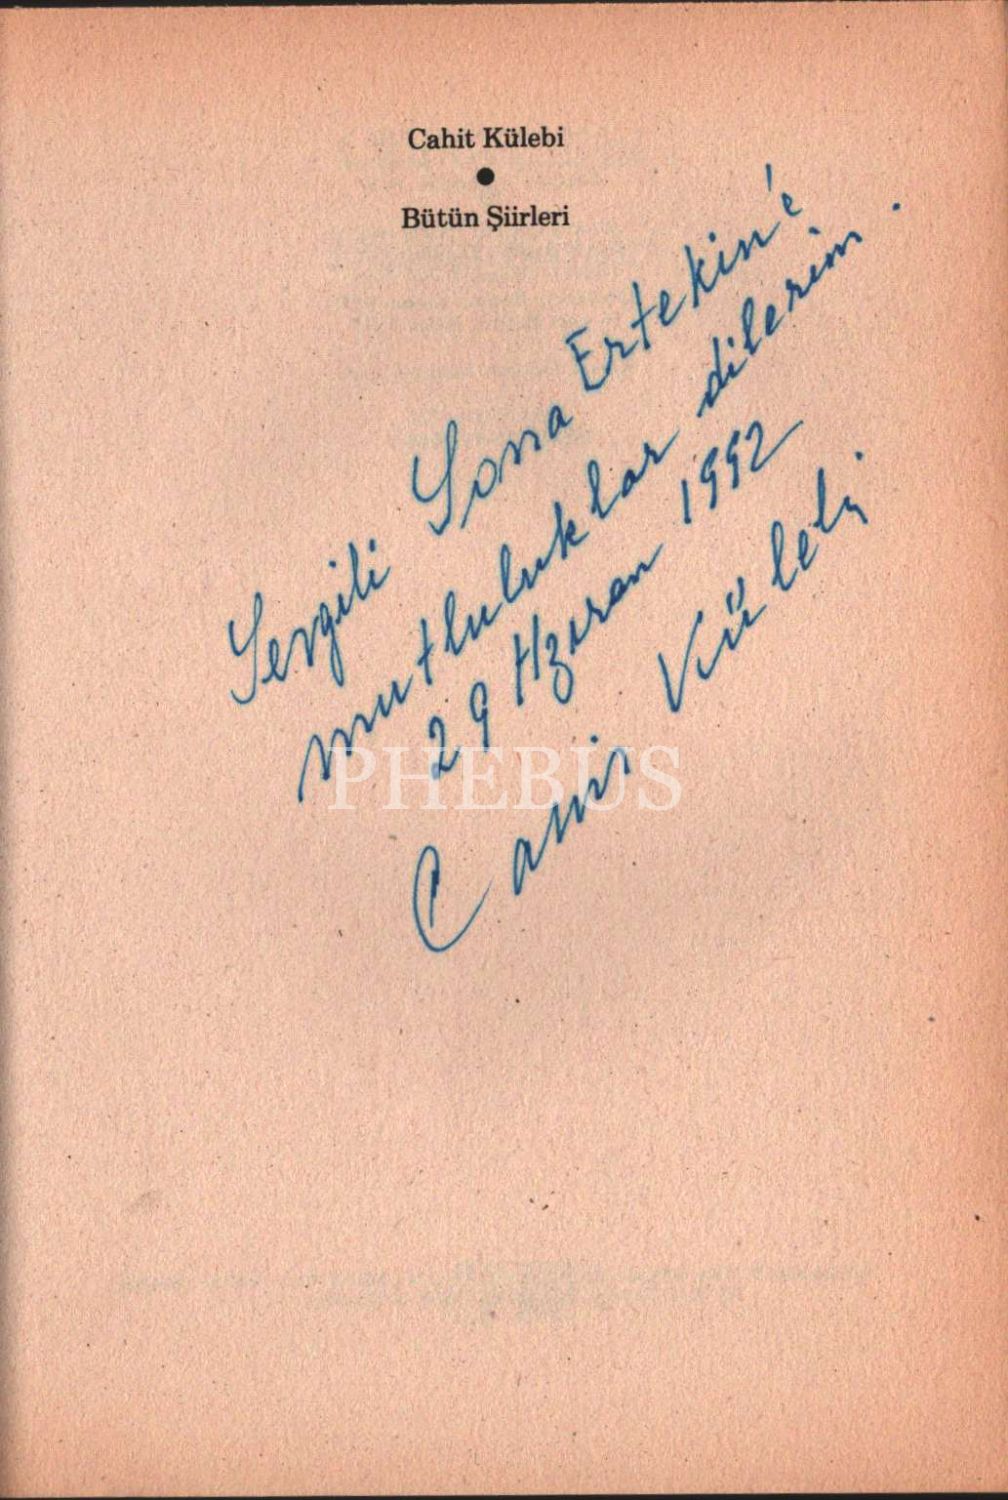 Cahit Külebi
●
Bütün Şiirleri
Sevgili Sona Ertekin'e
mutluluklar dilerim.
29 Hziran 1992
Cahit Külebi
PHEBUS